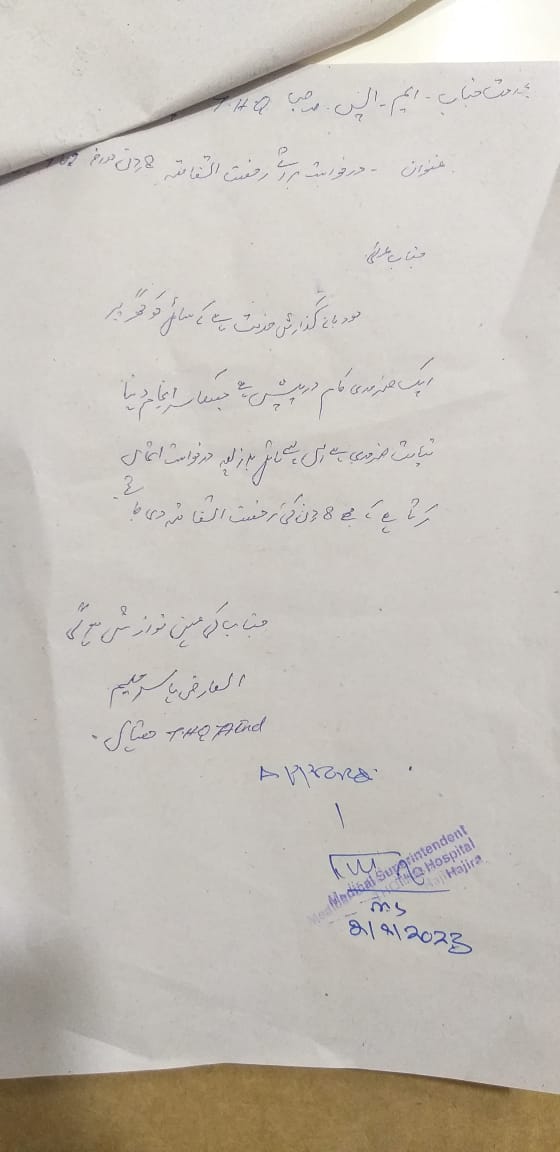 بخدمت جناب - ایم - ایس - صاحب THQ
عنوان - درخواست برائے رخصت اتفاقیہ 8 دن مورخہ
جناب عالی
مودبانہ گذارش خدمت ہے کہ سائل کو گھر پر
ایک ضروری کام درپیش ہے جسکا سر انجام دینا
نہایت ضروری ہے اس لیے سائل بذریعہ درخواست التماس
کرتا ہے کہ مجھے 8 دن کی رخصت اتفاقیہ دی جائے
جناب کی عین نوازش ہو گی
العارض یاسر
THQ
Medical Superintendent
Hospital
Hajira
MS
2023